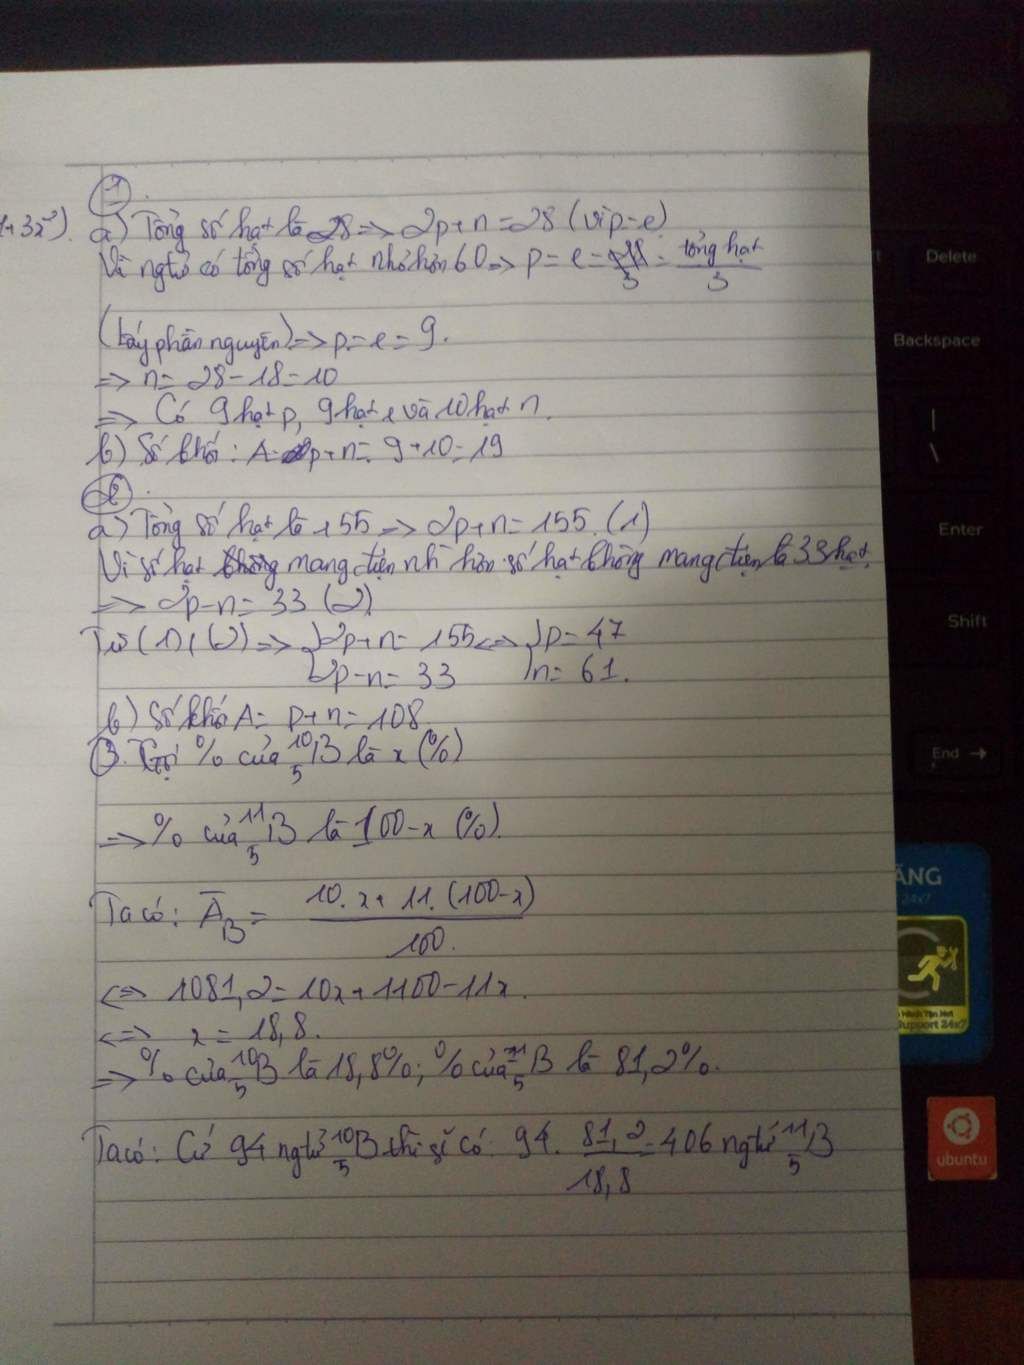 1
1+3x²).
a) Tổng số hạt là 28 => 2p+n=28 (vì p=e)
Vì ngtử có tổng số hạt nhỏ hơn 60 => p = e = tổng hạt / 3
(lấy phần nguyên) => p = e = 9.
=> n = 28 - 18 = 10
=> Có 9 hạt p, 9 hạt e và 10 hạt n.
b) Số khối: A = p+n = 9+10 = 19
2
a) Tổng số hạt là 155 => 2p+n = 155. (1)
Vì số hạt mang điện nh hơn số hạt không mang điện là 33 hạt
=> 2p-n = 33 (2)
Từ (1), (2) => { 2p+n = 155 <=> { p = 47
2p-n = 33 n = 61.
b) Số khối A = p+n = 108.
3. Gọi % của ¹⁰₅B là x (%)
=> % của ¹¹₅B là 100-x (%).
Ta có: A̅_B = 10. x + 11. (100-x) / 100.
<=> 1081,2 = 10x + 1100 - 11x.
<=> x = 18,8.
=> % của ¹⁰₅B là 18,8%; % của ¹¹₅B là 81,2%.
Ta có: Cứ 94 ngtử ¹⁰₅B thì sẽ có: 94. 81,2 / 18,8 = 406 ngtử ¹¹₅B
Delete
Backspace
|
\
Enter
Shift
End →
ĂNG
24x7
Minh Tân Net
Support 24x7
ubuntu